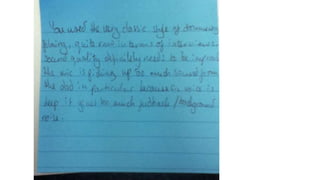 You used the very classic style of documentary
filming, quite rare in terms of interviews
Sound quality definitely needs to be improved
the mic is picking up too much sound from
the dad in particular because his voice is
deep it gives too much feedback / background
noise.